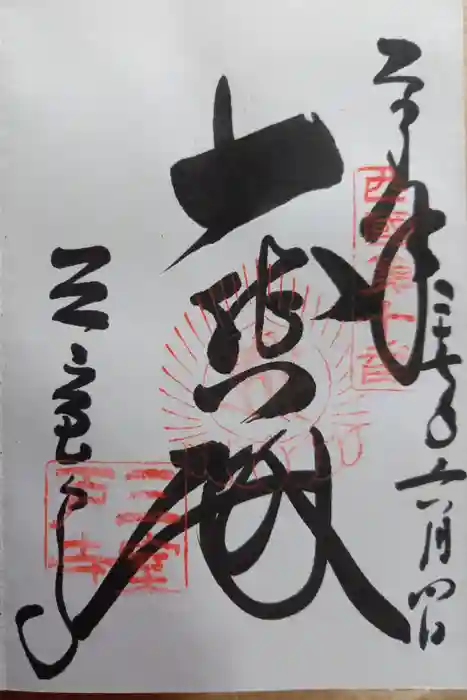 奉拝
二十七年六月四日
西國第十番
大悲殿
三室戸寺
三室
戸寺